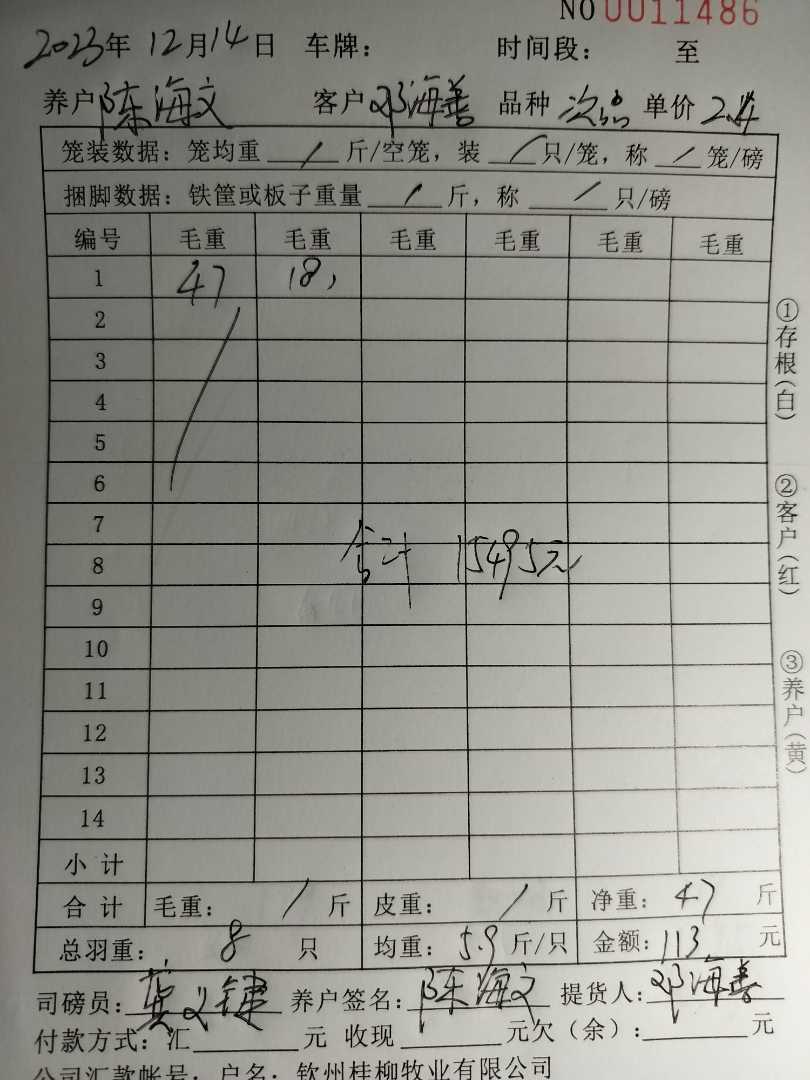 NO 0011486
2023年 12月14日 车牌： 时间段： 至
养户 陈海文 客户 邓海善 品种 次品 单价 2.4
笼装数据：笼均重 / 斤/空笼，装 / 只/笼，称 / 笼/磅
捆脚数据：铁筐或板子重量 / 斤，称 / 只/磅
编号 毛重 毛重 毛重 毛重 毛重 毛重
1 47 18,
2
3
4
5
6
7
合计 15495元
8
9
10
11
12
13
14
小计
合计 毛重： / 斤 皮重： / 斤 净重： 47 斤
总羽重： 8 只 均重： 5.9 斤/只 金额： 113 元
司磅员： 养户签名： 陈海文 提货人： 邓海善
付款方式：汇 元 收现 元欠（余）： 元
公司汇款帐号：户名：钦州桂柳牧业有限公司
①存根（白）
②客户（红）
③养户（黄）